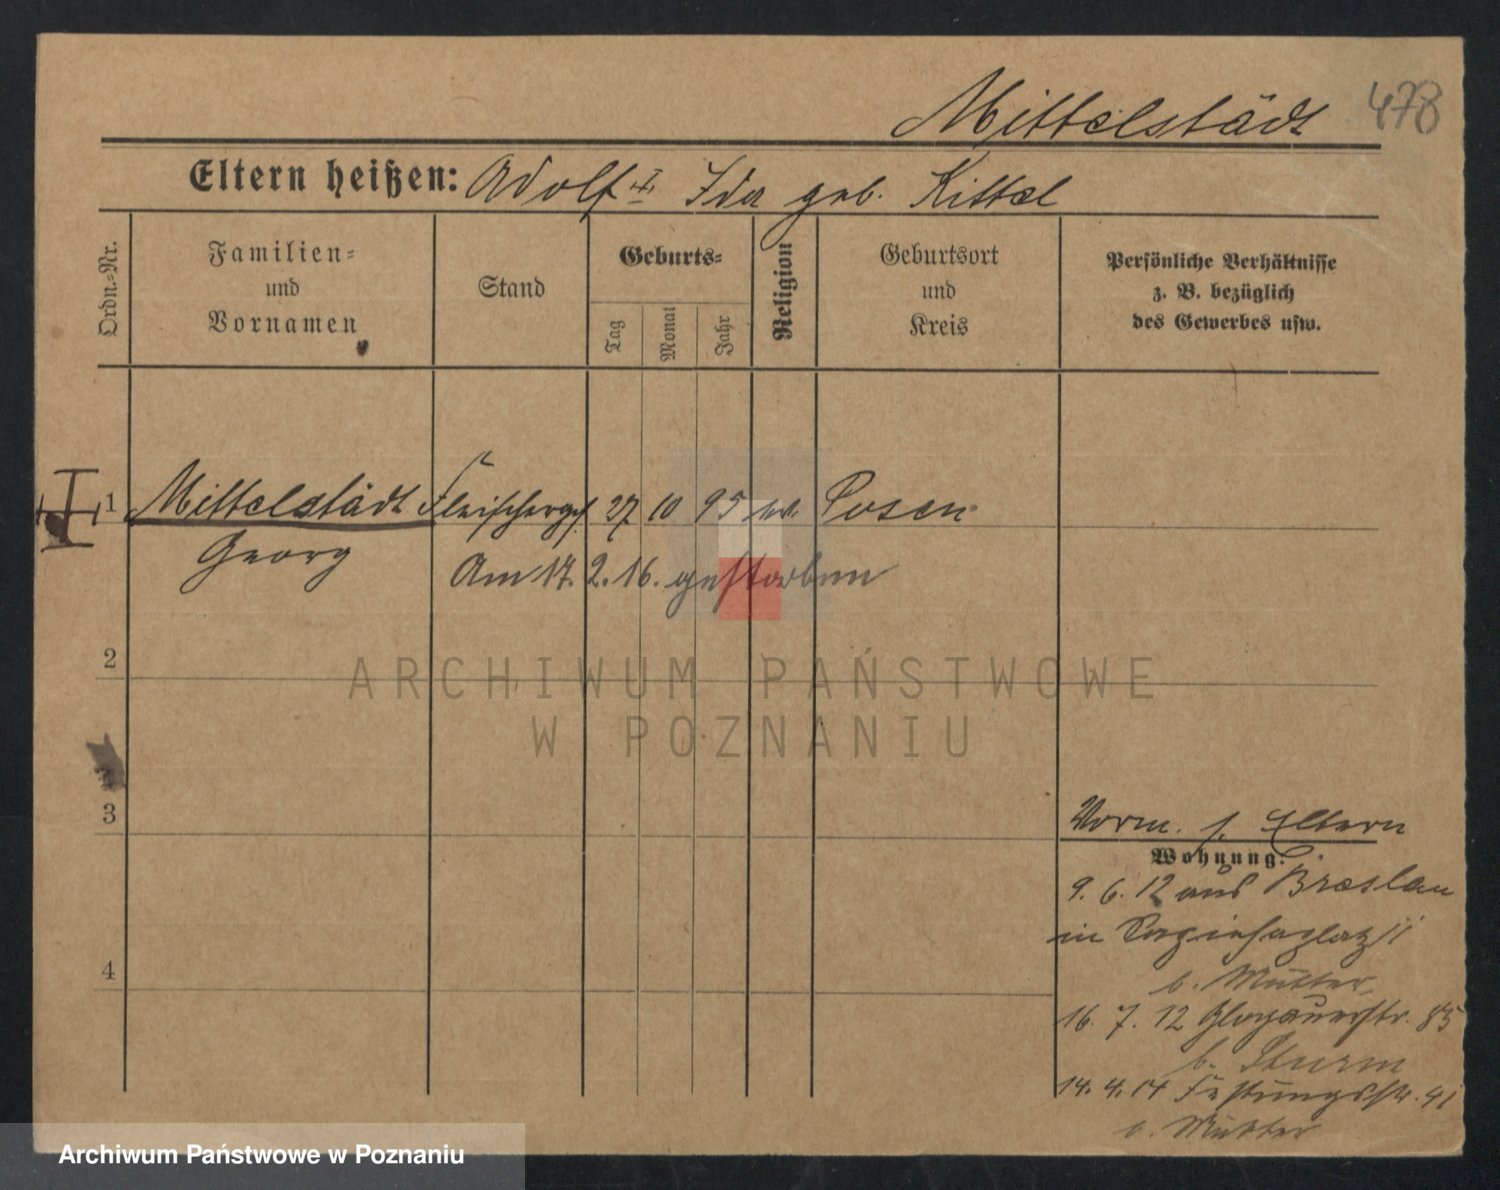 Mittelstädt 478
Eltern heißen: Adolf u. Ida geb. Kittel
Ordn.-Nr.
Familien-
und
Vornamen
Stand
Geburts-
Tag
Monat
Jahr
Religion
Geburtsort
und
Kreis
Persönliche Verhältnisse
z. B. bezüglich
des Gewerbes usw.
1 Mittelstädt Fleischerges. 27 10 95 ev. Posen
Georg
Am 17. 2. 16. gestorben
2
3
4
Vorm. s. Eltern
Wohnung:
9. 6. 12 aus Breslau
in Sapiehaplatz 11
b. Mutter
16. 7. 12 Glogauerstr. 85
b. Sturm
14. 4. 14 Festungsstr. 41
b. Mutter
ARCHIWUM PAŃSTWOWE
W POZNANIU
Archiwum Państwowe w Poznaniu